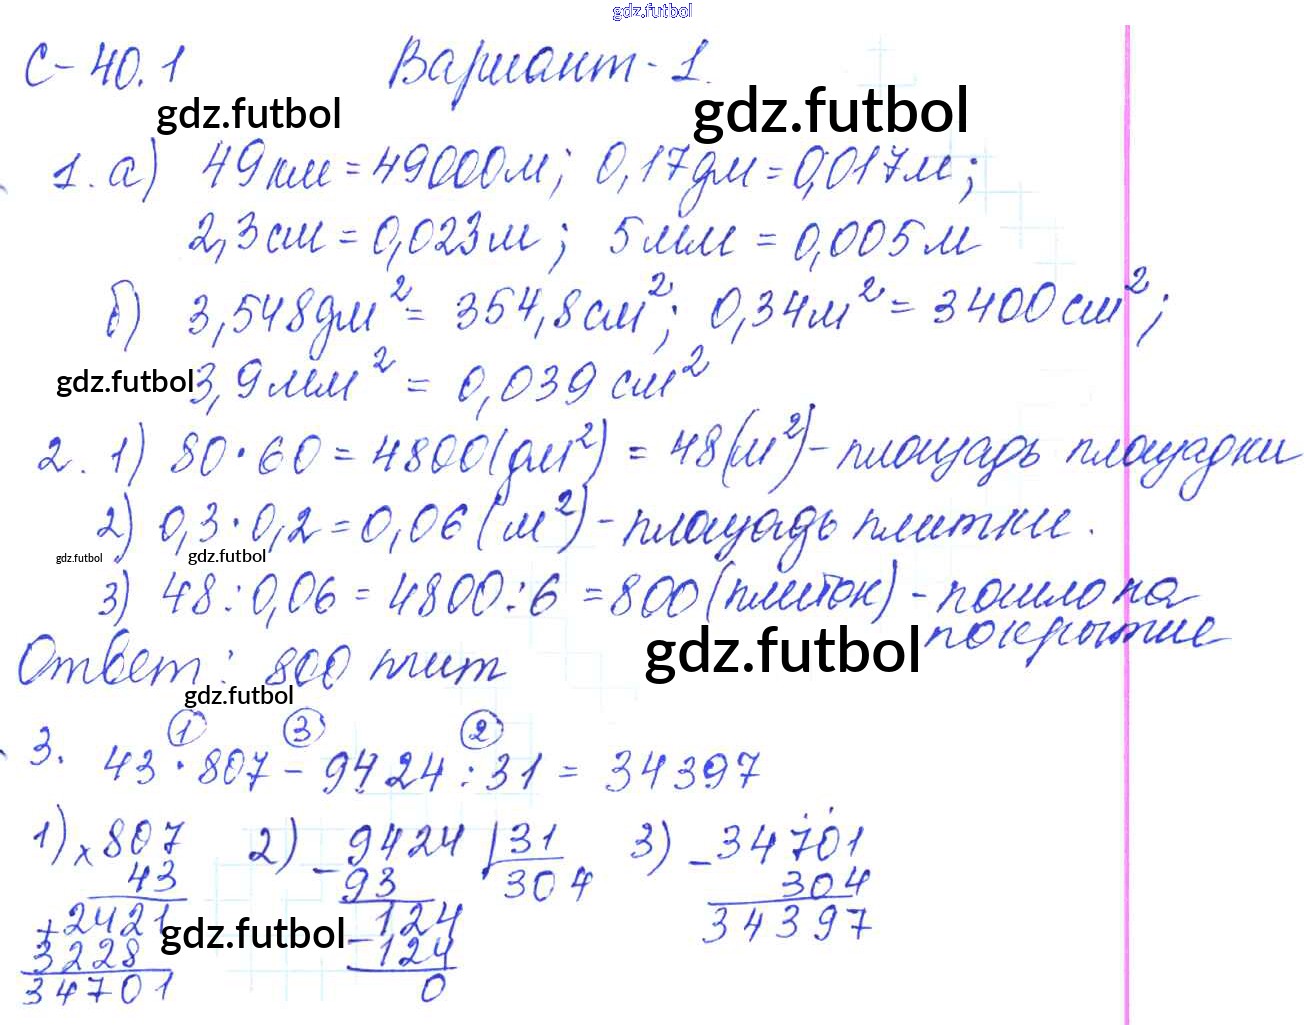 gdz.futbol
С-40.1 Вариант-1.
gdz.futbol gdz.futbol
1. а) 49км = 49000м; 0,17дм = 0,017м;
2,3см = 0,023м; 5мм = 0,005м
б) 3,548дм² = 354,8см²; 0,34м² = 3400см²;
gdz.futbol 3,9мм² = 0,039 см²
2. 1) 80·60 = 4800(дм²) = 48(м²)- площадь площадки
2) 0,3·0,2 = 0,06 (м²) - площадь плитки.
gdz.futbol gdz.futbol
3) 48:0,06 = 4800:6 = 800(плиток) - пошло на
покрытие
gdz.futbol
Ответ: 800 плит
gdz.futbol
1 3 2
3. 43·807 - 9424:31 = 34397
1) × 807 2) - 9424 | 31 3) - 34701
43 93 304 304
+ 2421 124 34397
gdz.futbol
3228 - 124
34701 0